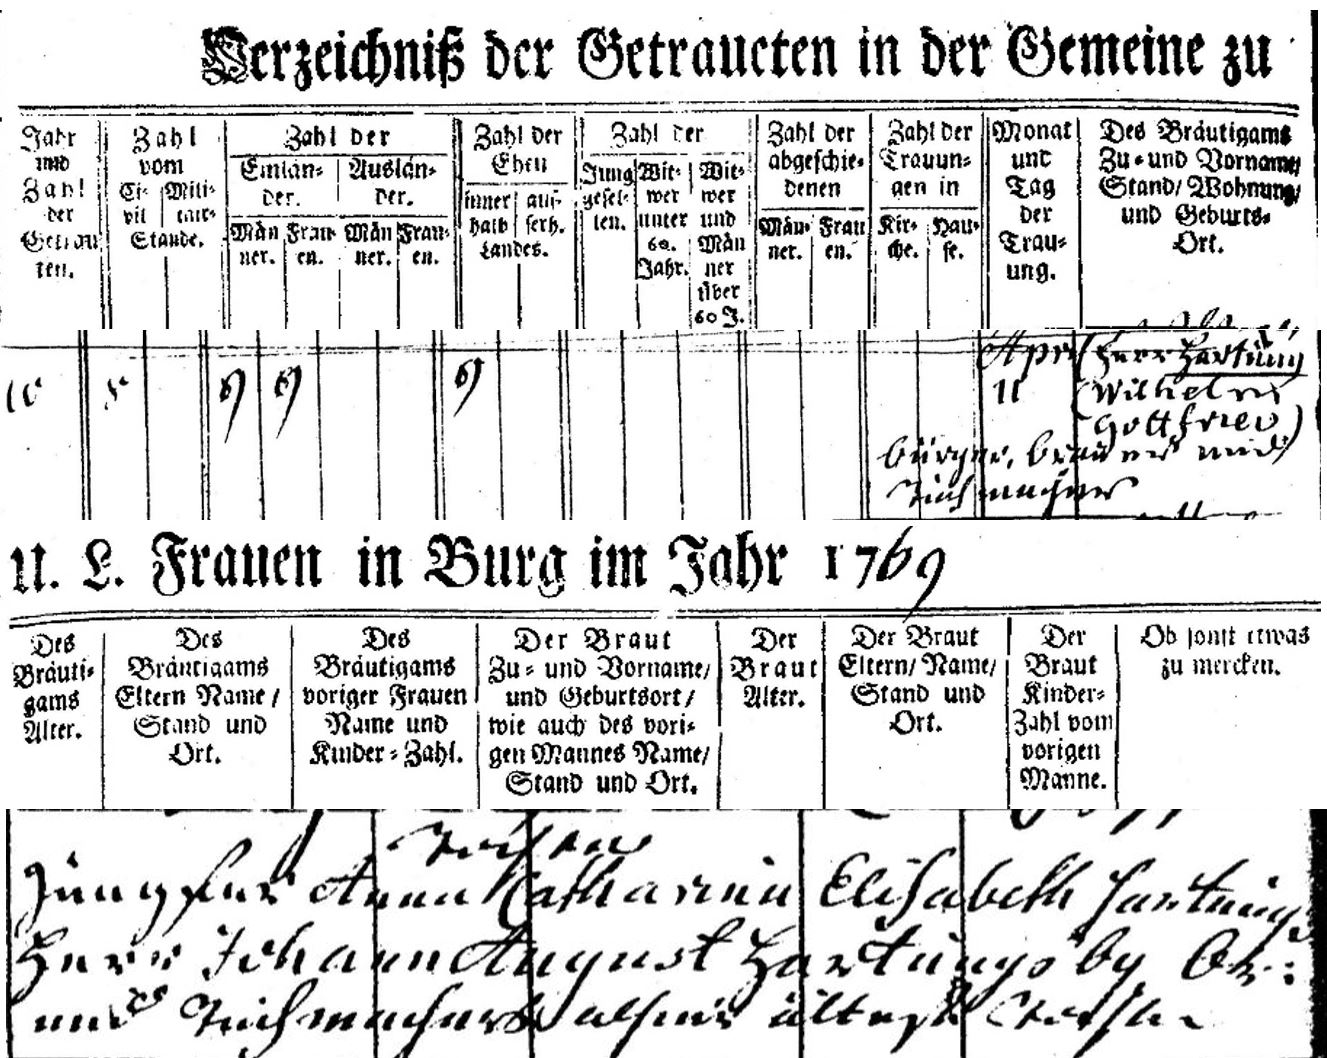 Verzeichniß der Getraueten in der Gemeine zu
Jahr und Zahl der Getrauten.
Zahl vom
Ci- vil | Mili- tair-
Stande.
Zahl der
Einlän- der. | Auslän- der.
Män ner. | Frau- en. | Män ner. | Frau- en.
Zahl der Ehen
inner halb | aus- serh.
Landes.
Zahl der
Jung gesel- len. | Wit- wer unter 60. Jahr. | Wit- wer und Män ner über 60 J.
Zahl der abgeschie- denen
Män- ner. | Frau en.
Zahl der Trauun- gen in
Kir- che. | Hau- se.
Monat und Tag der Trau- ung.
Des Bräutigams Zu- und Vorname, Stand/ Wohnung/ und Geburts- Ort.
9 9 9 Apr Herr Hartung
11 (Wilhelm
Gottfried)
bürger, brauer und
Tuchmacher
U. L. Frauen in Burg im Jahr 1769
Des Bräuti- gams Alter.
Des Bräutigams Eltern Name/ Stand und Ort.
Des Bräutigams voriger Frauen Name und Kinder-Zahl.
Der Braut Zu- und Vorname/ und Geburtsort/ wie auch des vori- gen Mannes Name/ Stand und Ort.
Der Braut Alter.
Der Braut Eltern/ Name/ Stand und Ort.
Der Braut Kinder- Zahl vom vorigen Manne.
Ob sonst etwas zu mercken.
Jungfer Anna Catharina Elisabeth Hartung
Herr Johann August Hartungs bg Br:
und Tuchmachers alhier älteste Tochter